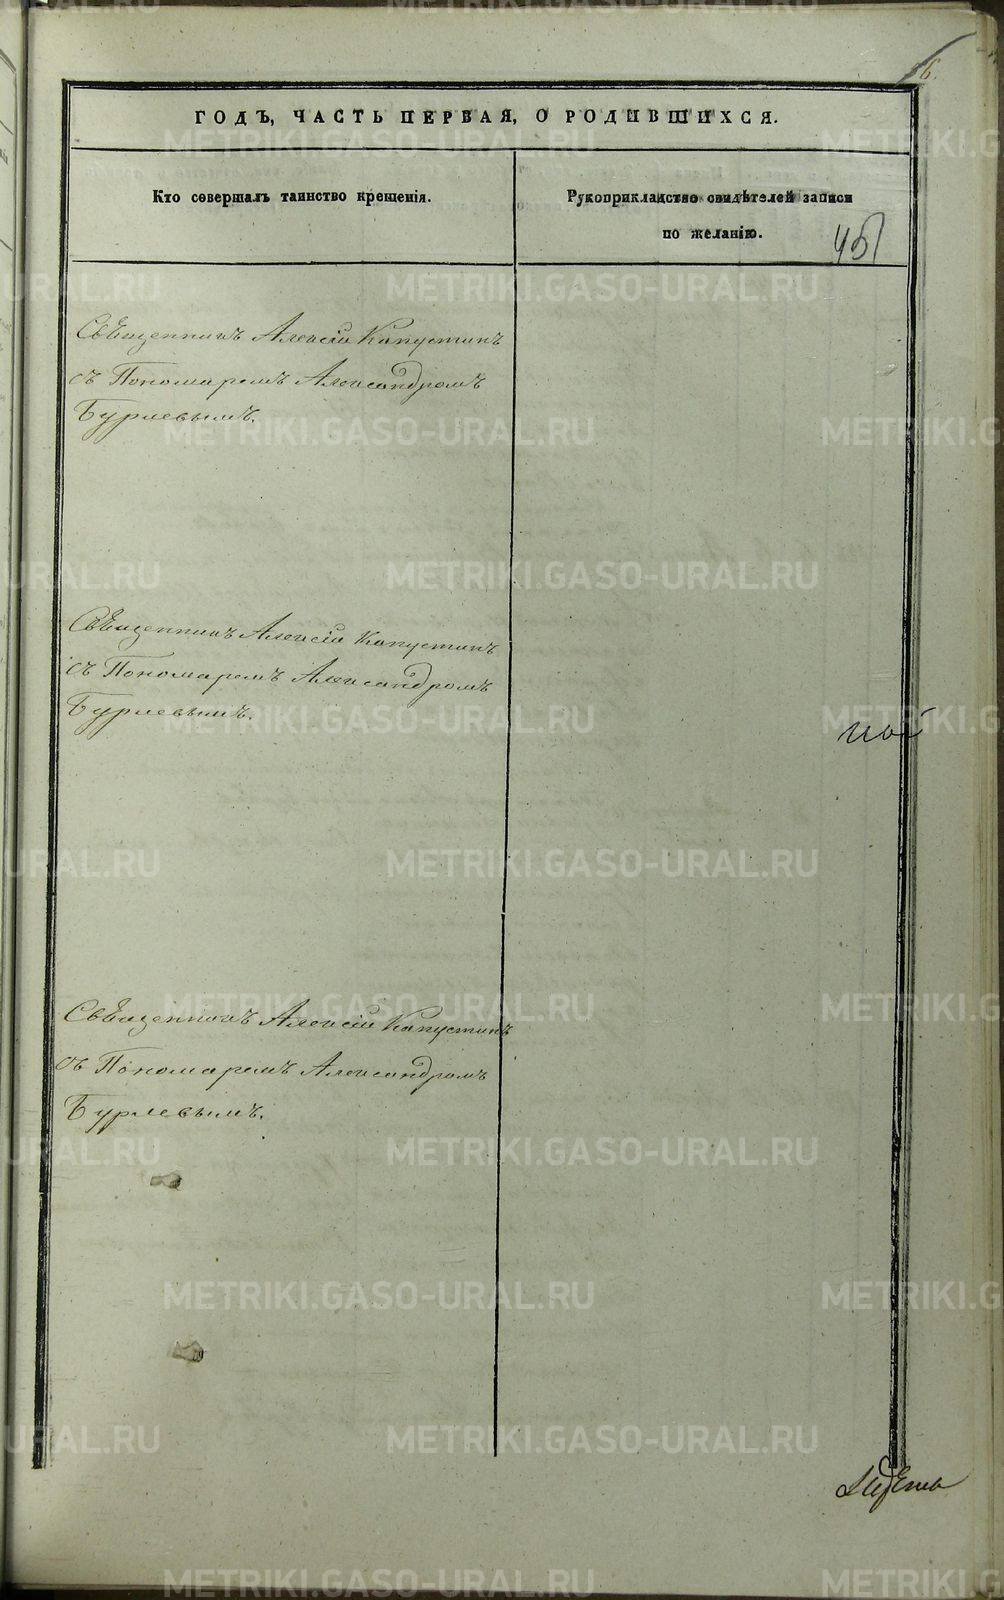 6.
ГОДЪ, ЧАСТЬ ПЕРВАЯ, О РОДИВШИХСЯ.
Кто совершалъ таинство крещенія.
Рукоприкладство свидѣтелей записи
по желанію.
Священникъ Алексій Капустинъ
съ Пономаремъ Александромъ
Бурлевымъ.
Священникъ Алексій Капустинъ
съ Пономаремъ Александромъ
Бурлевымъ.
Священникъ Алексій Капустинъ
съ Пономаремъ Александромъ
Бурлевымъ.
METRIKI.GASO-URAL.RU